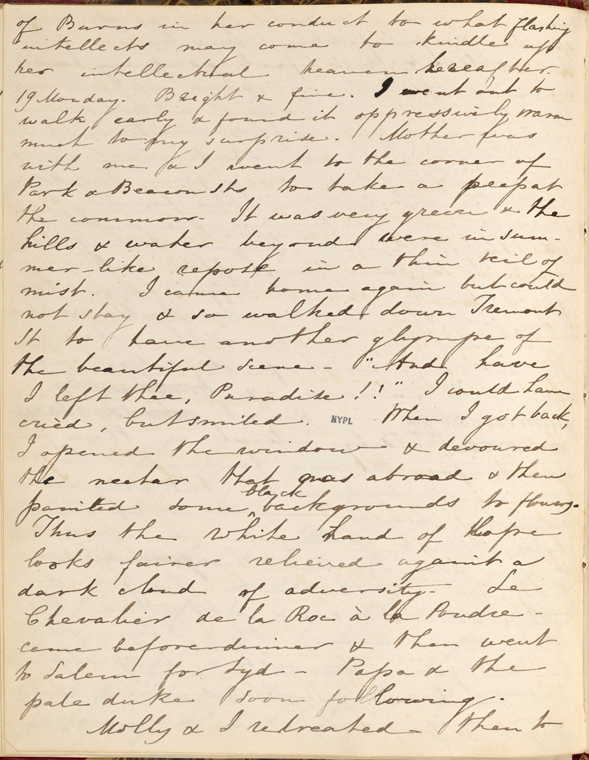 of Burns in her conduct to what flashing
intellects may come to kindle up
her intellectual heaven hereafter.
19 Monday. Bright & fine. I went out to
walk early & found it oppressively warm
much to my surprise. Mother was
with me & I went to the corner of
Park & Beacon Sts to take a peep at
the common. It was very green & the
hills & water beyond were in sum-
mer-like repose in a thin veil of
mist. I came home again but could
not stay & so walked down Tremont
St to have another glympse of
the beautiful scene - "And have
I left thee, Paradise!!" I could have
cried, but smiled. When I got back,
NYPL
I opened the window & devoured
the nectar that was abroad & then
painted some black backgrounds to flowers.
Thus the white hand of Hope
looks fairer relieved against a
dark cloud of adversity. Le
Chevalier de la Roc à la Poudre -
came before dinner & then went
to Salem for Syd - Papa & the
pale duke soon following.
Molly & I retreated - then to